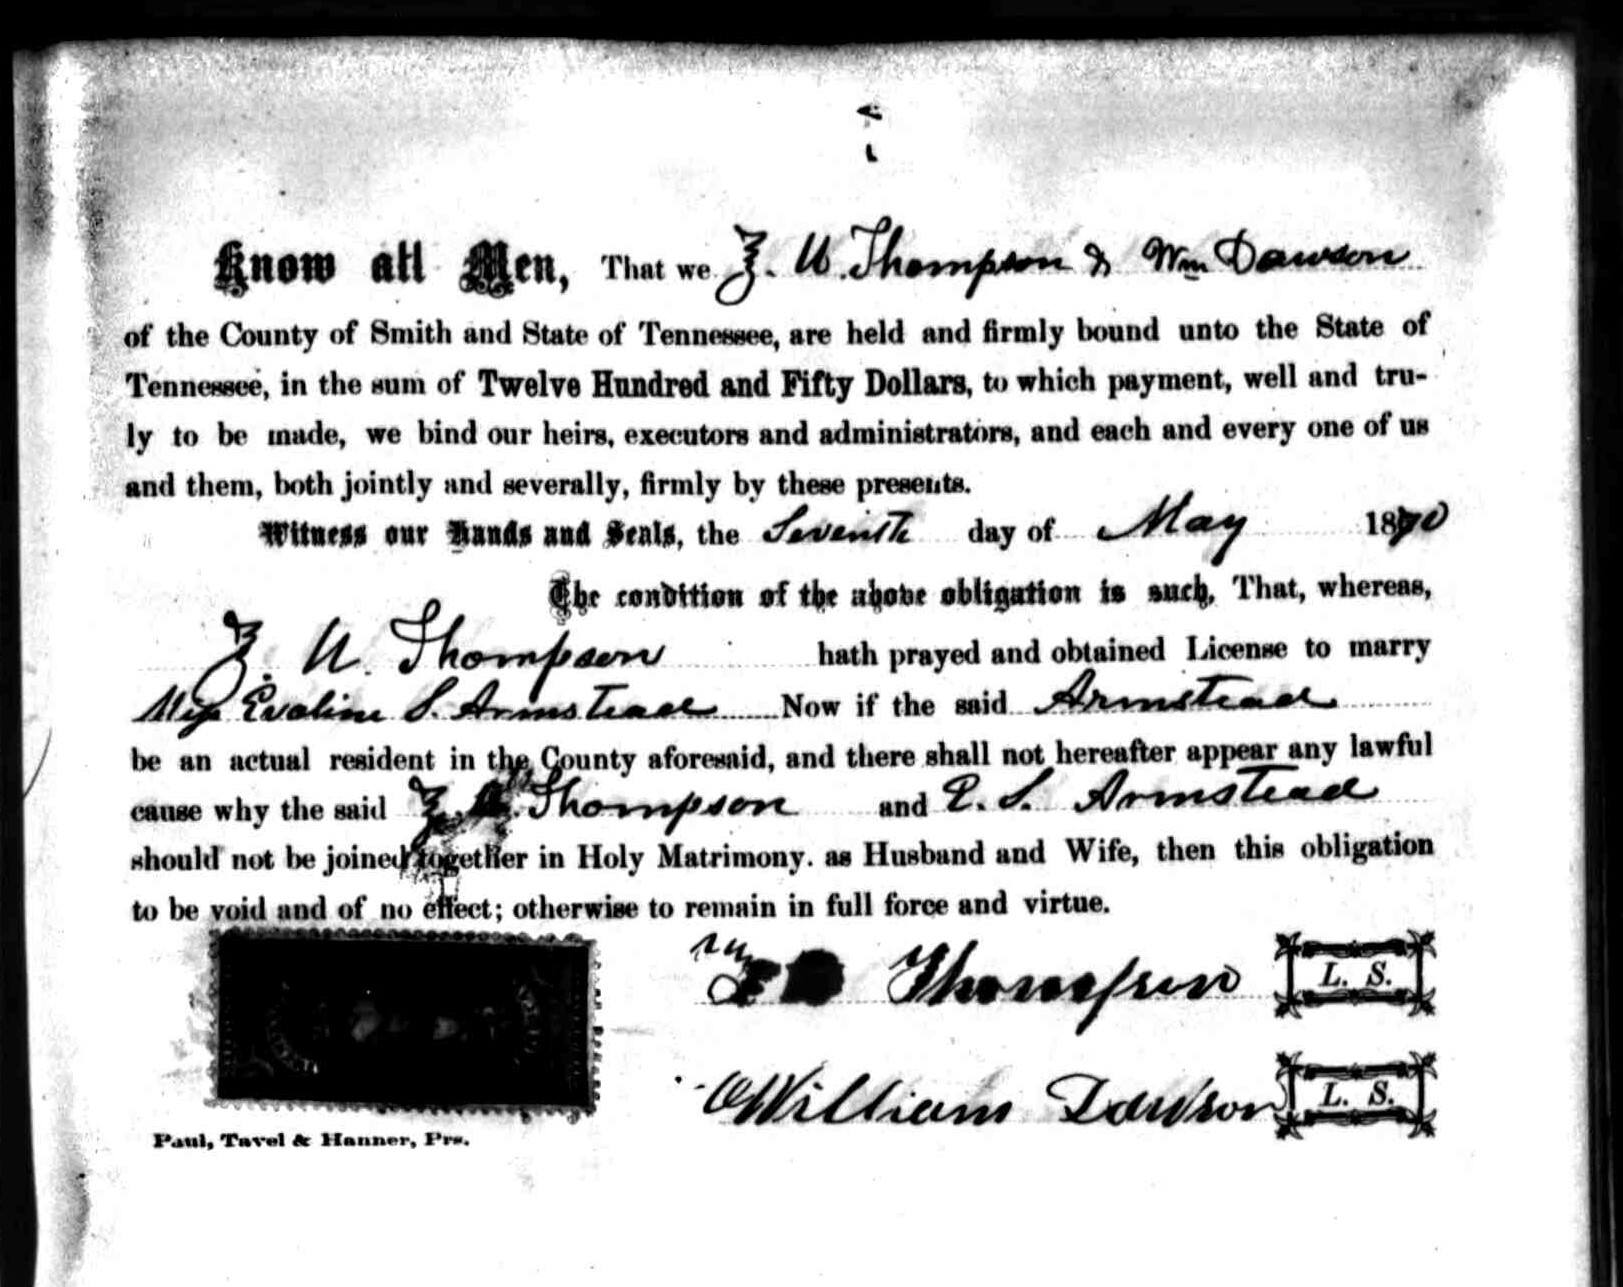 Know all Men, That we Z. U. Thompson & Wm Dawson
of the County of Smith and State of Tennessee, are held and firmly bound unto the State of
Tennessee, in the sum of Twelve Hundred and Fifty Dollars, to which payment, well and tru-
ly to be made, we bind our heirs, executors and administrators, and each and every one of us
and them, both jointly and severally, firmly by these presents.
Witness our Hands and Seals, the Seventh day of May 1870
The condition of the above obligation is such, That, whereas,
Z. U. Thompson hath prayed and obtained License to marry
Miss Evaline S. Armstead Now if the said Armstead
be an actual resident in the County aforesaid, and there shall not hereafter appear any lawful
cause why the said Z. Thompson and E. S. Armstead
should not be joined together in Holy Matrimony. as Husband and Wife, then this obligation
to be void and of no effect; otherwise to remain in full force and virtue.
Thompson L. S.
William Dawson L. S.
Paul, Tavel & Hanner, Prs.